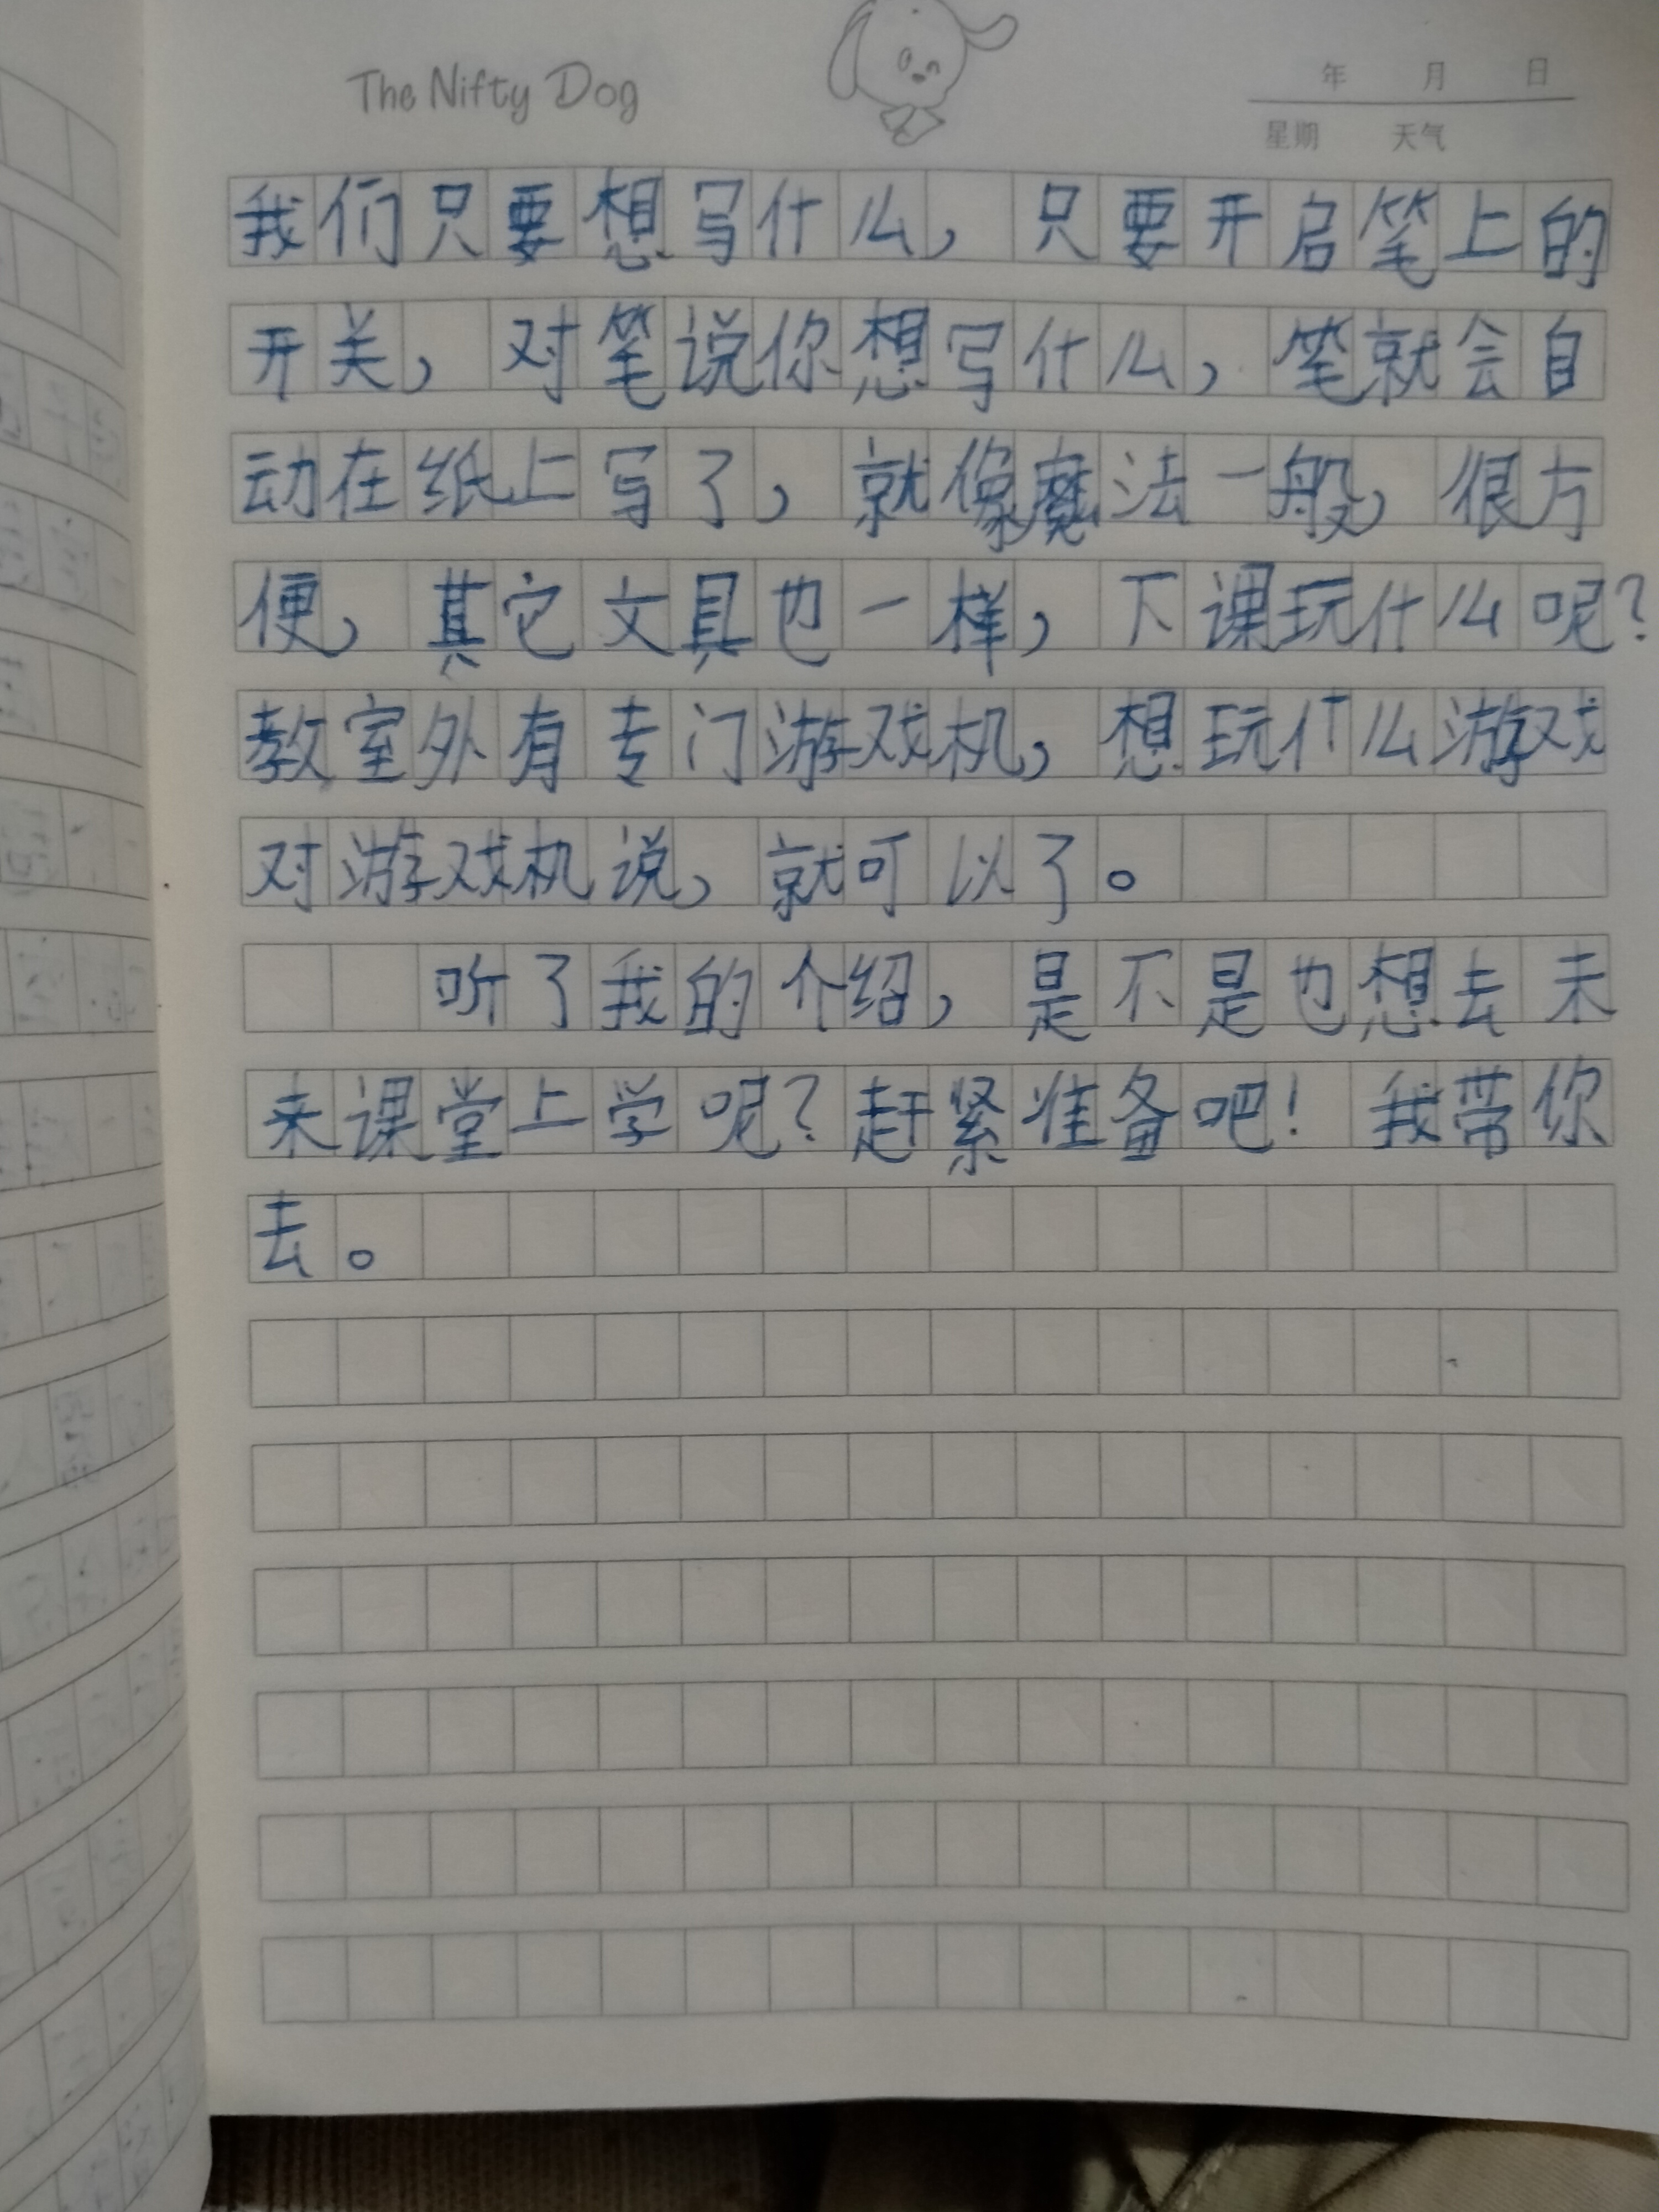 The Nifty Dog
年 月 日
星期 天气
我们只要想写什么，只要开启笔上的
开关，对笔说你想写什么，笔就会自
动在纸上写了，就像魔法一般，很方
便，其它文具也一样，下课玩什么呢？
教室外有专门游戏机，想玩什么游戏
对游戏机说，就可以了。
听了我的介绍，是不是也想去未
来课堂上学呢？赶紧准备吧！我带你
去。